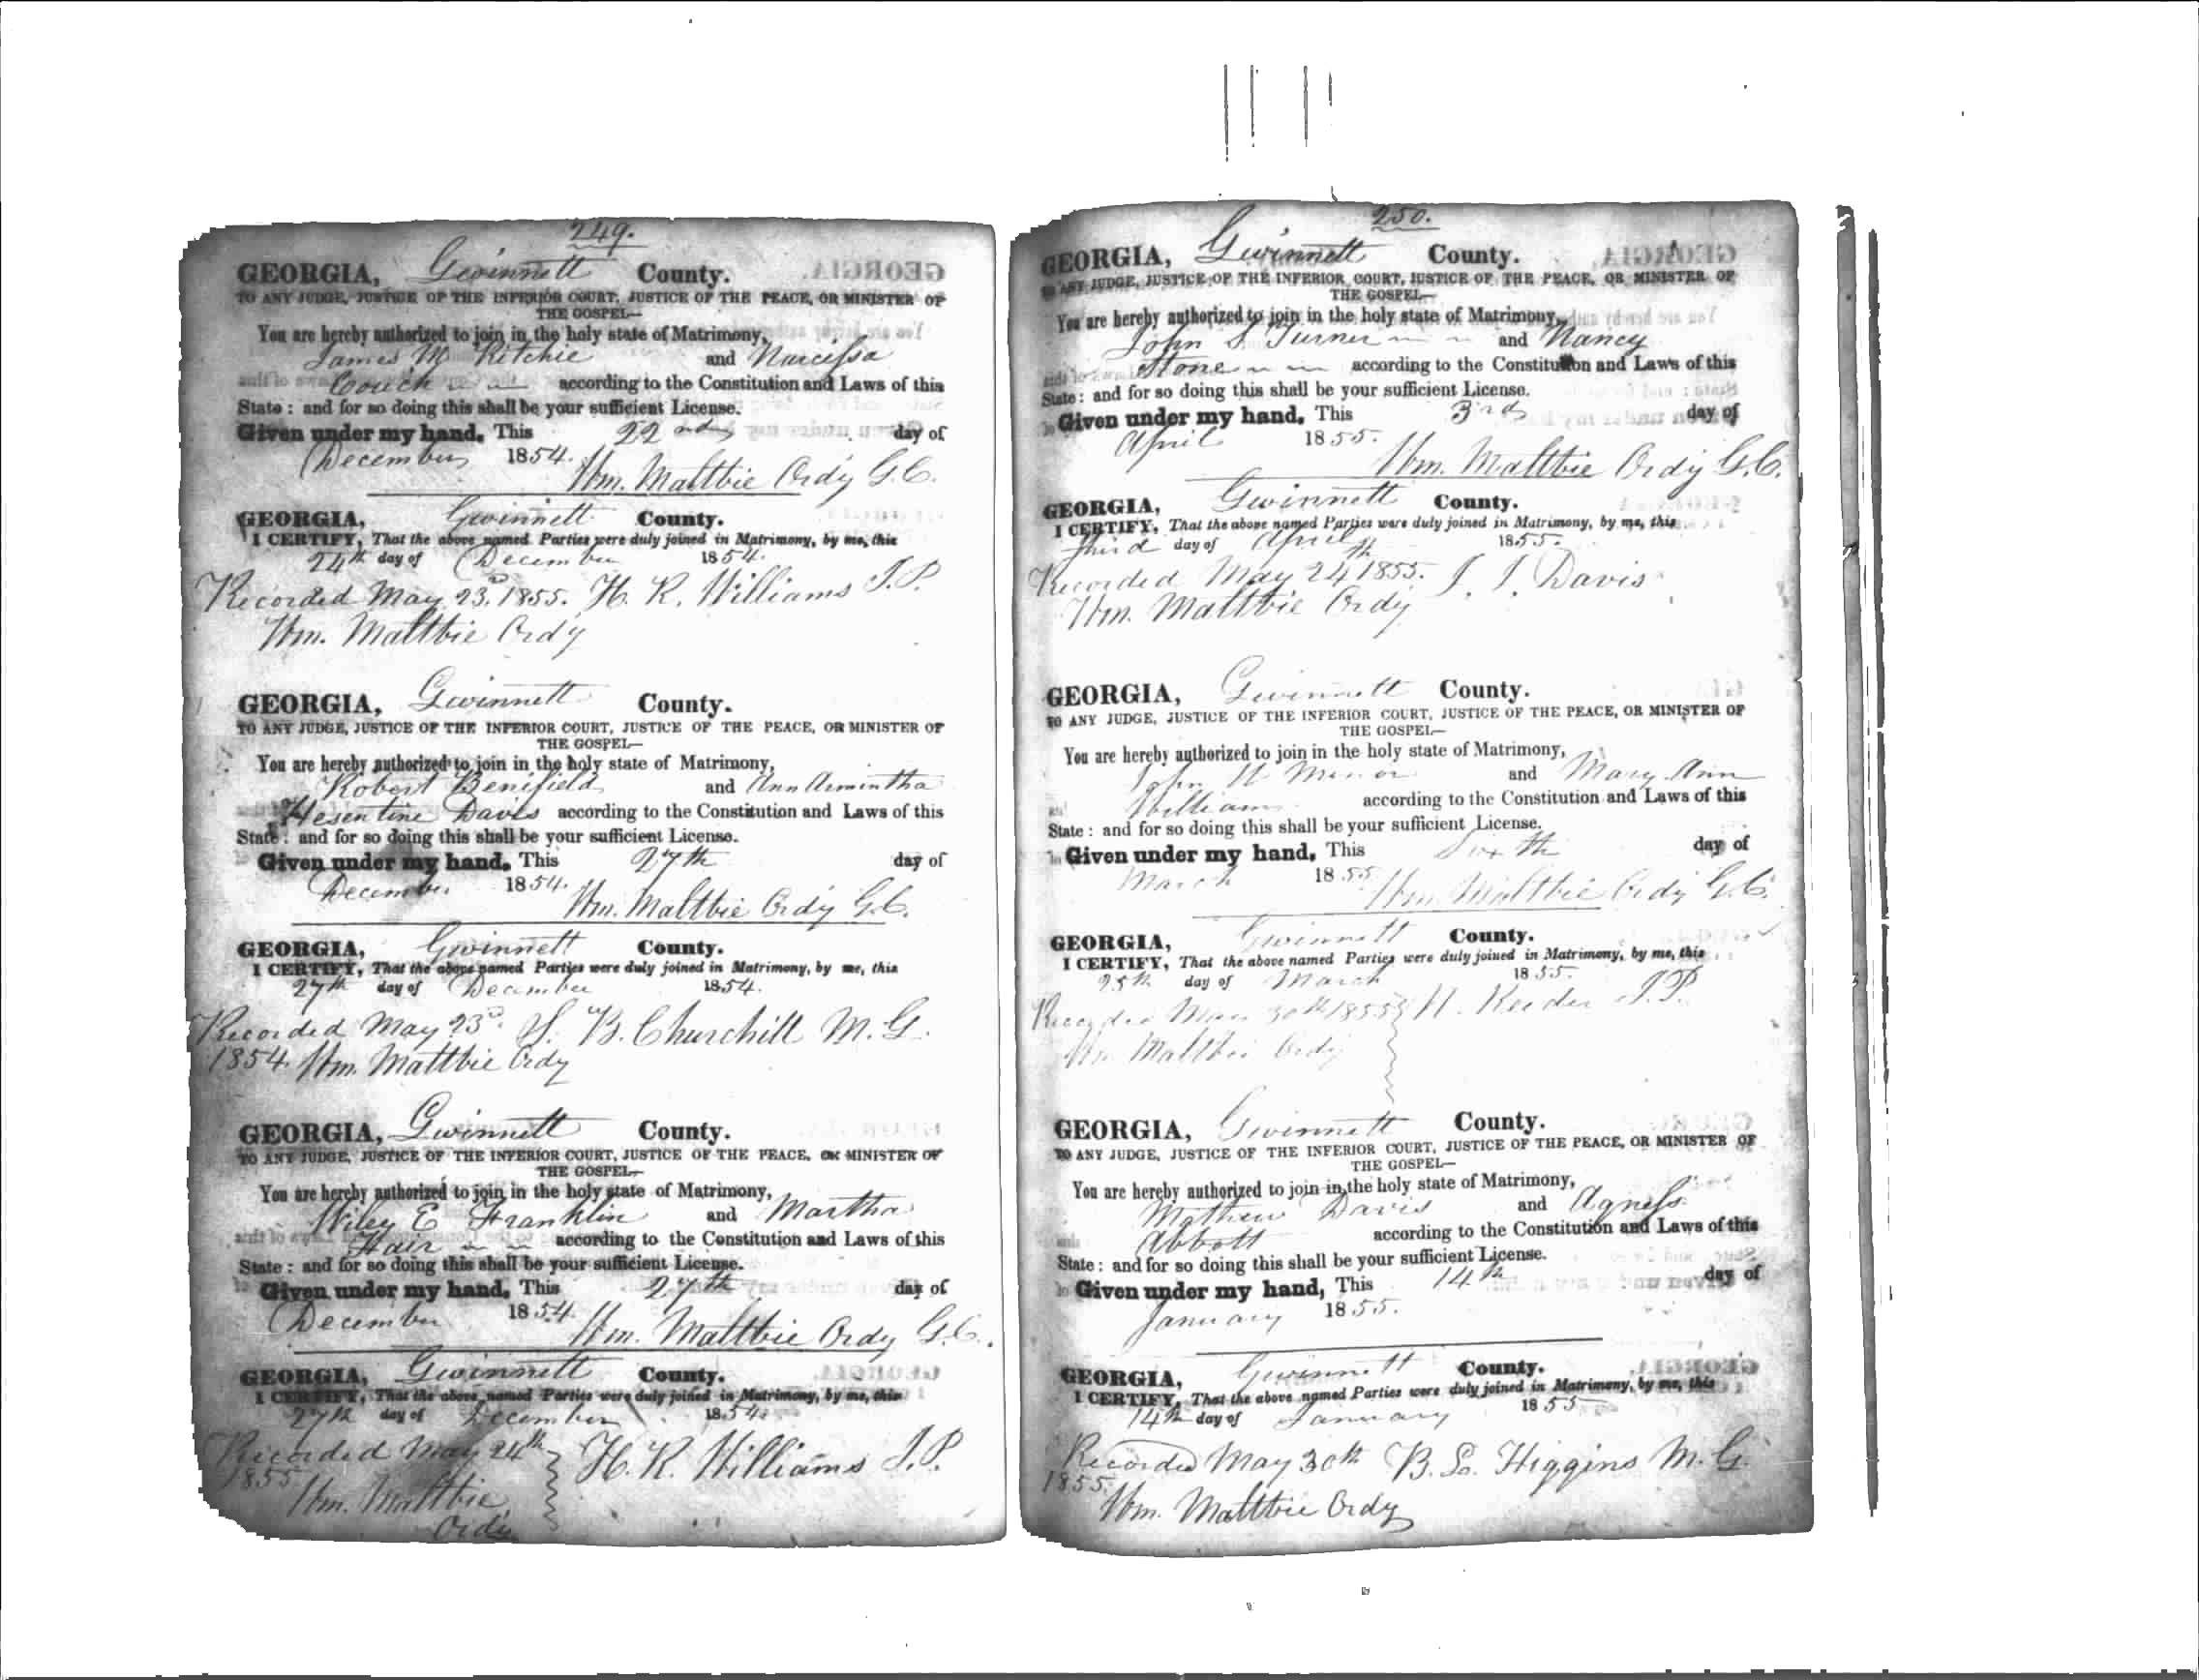 249.
GEORGIA, Gwinnett County.
TO ANY JUDGE, JUSTICE OF THE INFERIOR COURT, JUSTICE OF THE PEACE, OR MINISTER OF
THE GOSPEL—
You are hereby authorized to join in the holy state of Matrimony,
James M Ritchie and Narcissa
Couch according to the Constitution and Laws of this
State : and for so doing this shall be your sufficient License.
Given under my hand, This 22nd day of
December 1854.
Wm. Maltbie Ordy G.C.
GEORGIA, Gwinnett County.
I CERTIFY, That the above named Parties were duly joined in Matrimony, by me, this
24th day of December 1854.
Recorded May 23d. 1855. H. R. Williams J.P.
Wm. Maltbie Ordy
GEORGIA, Gwinnett County.
TO ANY JUDGE, JUSTICE OF THE INFERIOR COURT, JUSTICE OF THE PEACE, OR MINISTER OF
THE GOSPEL—
You are hereby authorized to join in the holy state of Matrimony,
Robert Benifield and Ann Armintha
Hesentine Davis according to the Constitution and Laws of this
State : and for so doing this shall be your sufficient License.
Given under my hand, This 27th day of
December 1854.
Wm. Maltbie Ordy G.C.
GEORGIA, Gwinnett County.
I CERTIFY, That the above named Parties were duly joined in Matrimony, by me, this
27th day of December 1854.
Recorded May 23d. S. B. Churchill M.G.
1854. Wm. Maltbie Ordy
GEORGIA, Gwinnett County.
TO ANY JUDGE, JUSTICE OF THE INFERIOR COURT, JUSTICE OF THE PEACE, OR MINISTER OF
THE GOSPEL—
You are hereby authorized to join in the holy state of Matrimony,
Wiley E Franklin and Martha
Hair according to the Constitution and Laws of this
State : and for so doing this shall be your sufficient License.
Given under my hand, This 27th day of
December 1854.
Wm. Maltbie Ordy G.C.
GEORGIA, Gwinnett County.
I CERTIFY, That the above named Parties were duly joined in Matrimony, by me, this
27th day of December 1854.
Recorded May 24th H. R. Williams J.P.
1855
Wm. Maltbie
Ordy
250.
GEORGIA, Gwinnett County.
TO ANY JUDGE, JUSTICE OF THE INFERIOR COURT, JUSTICE OF THE PEACE, OR MINISTER OF
THE GOSPEL—
You are hereby authorized to join in the holy state of Matrimony,
John S. Turner and Nancy
Stone according to the Constitution and Laws of this
State : and for so doing this shall be your sufficient License.
Given under my hand, This 3rd day of
April 1855.
Wm. Maltbie Ordy G.C.
GEORGIA, Gwinnett County.
I CERTIFY, That the above named Parties were duly joined in Matrimony, by me, this
third day of April 1855.
Recorded May 24th 1855. J. J. Davis
Wm. Maltbie Ordy
GEORGIA, Gwinnett County.
TO ANY JUDGE, JUSTICE OF THE INFERIOR COURT, JUSTICE OF THE PEACE, OR MINISTER OF
THE GOSPEL—
You are hereby authorized to join in the holy state of Matrimony,
John H Minor and Mary Ann
Williams according to the Constitution and Laws of this
State : and for so doing this shall be your sufficient License.
Given under my hand, This Sixth day of
March 1855
Wm. Maltbie Ordy G.C.
GEORGIA, Gwinnett County.
I CERTIFY, That the above named Parties were duly joined in Matrimony, by me, this
25th day of March 1855.
Recorded May 30th 1855 N. Reeder J.P.
Wm. Maltbie Ordy
GEORGIA, Gwinnett County.
TO ANY JUDGE, JUSTICE OF THE INFERIOR COURT, JUSTICE OF THE PEACE, OR MINISTER OF
THE GOSPEL—
You are hereby authorized to join in the holy state of Matrimony,
Mathew Davis and Agness
Abbott according to the Constitution and Laws of this
State : and for so doing this shall be your sufficient License.
Given under my hand, This 14th day of
January 1855.
GEORGIA, Gwinnett County.
I CERTIFY, That the above named Parties were duly joined in Matrimony, by me, this
14th day of January 1855
Recorded May 30th B. L. Higgins M.G.
1855.
Wm. Maltbie Ordy